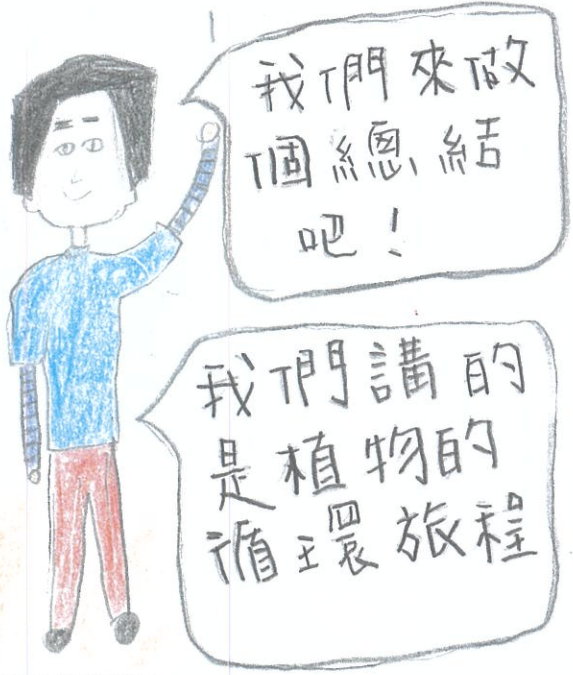 我們來做
個總結
吧！
我們講的
是植物的
循環旅程